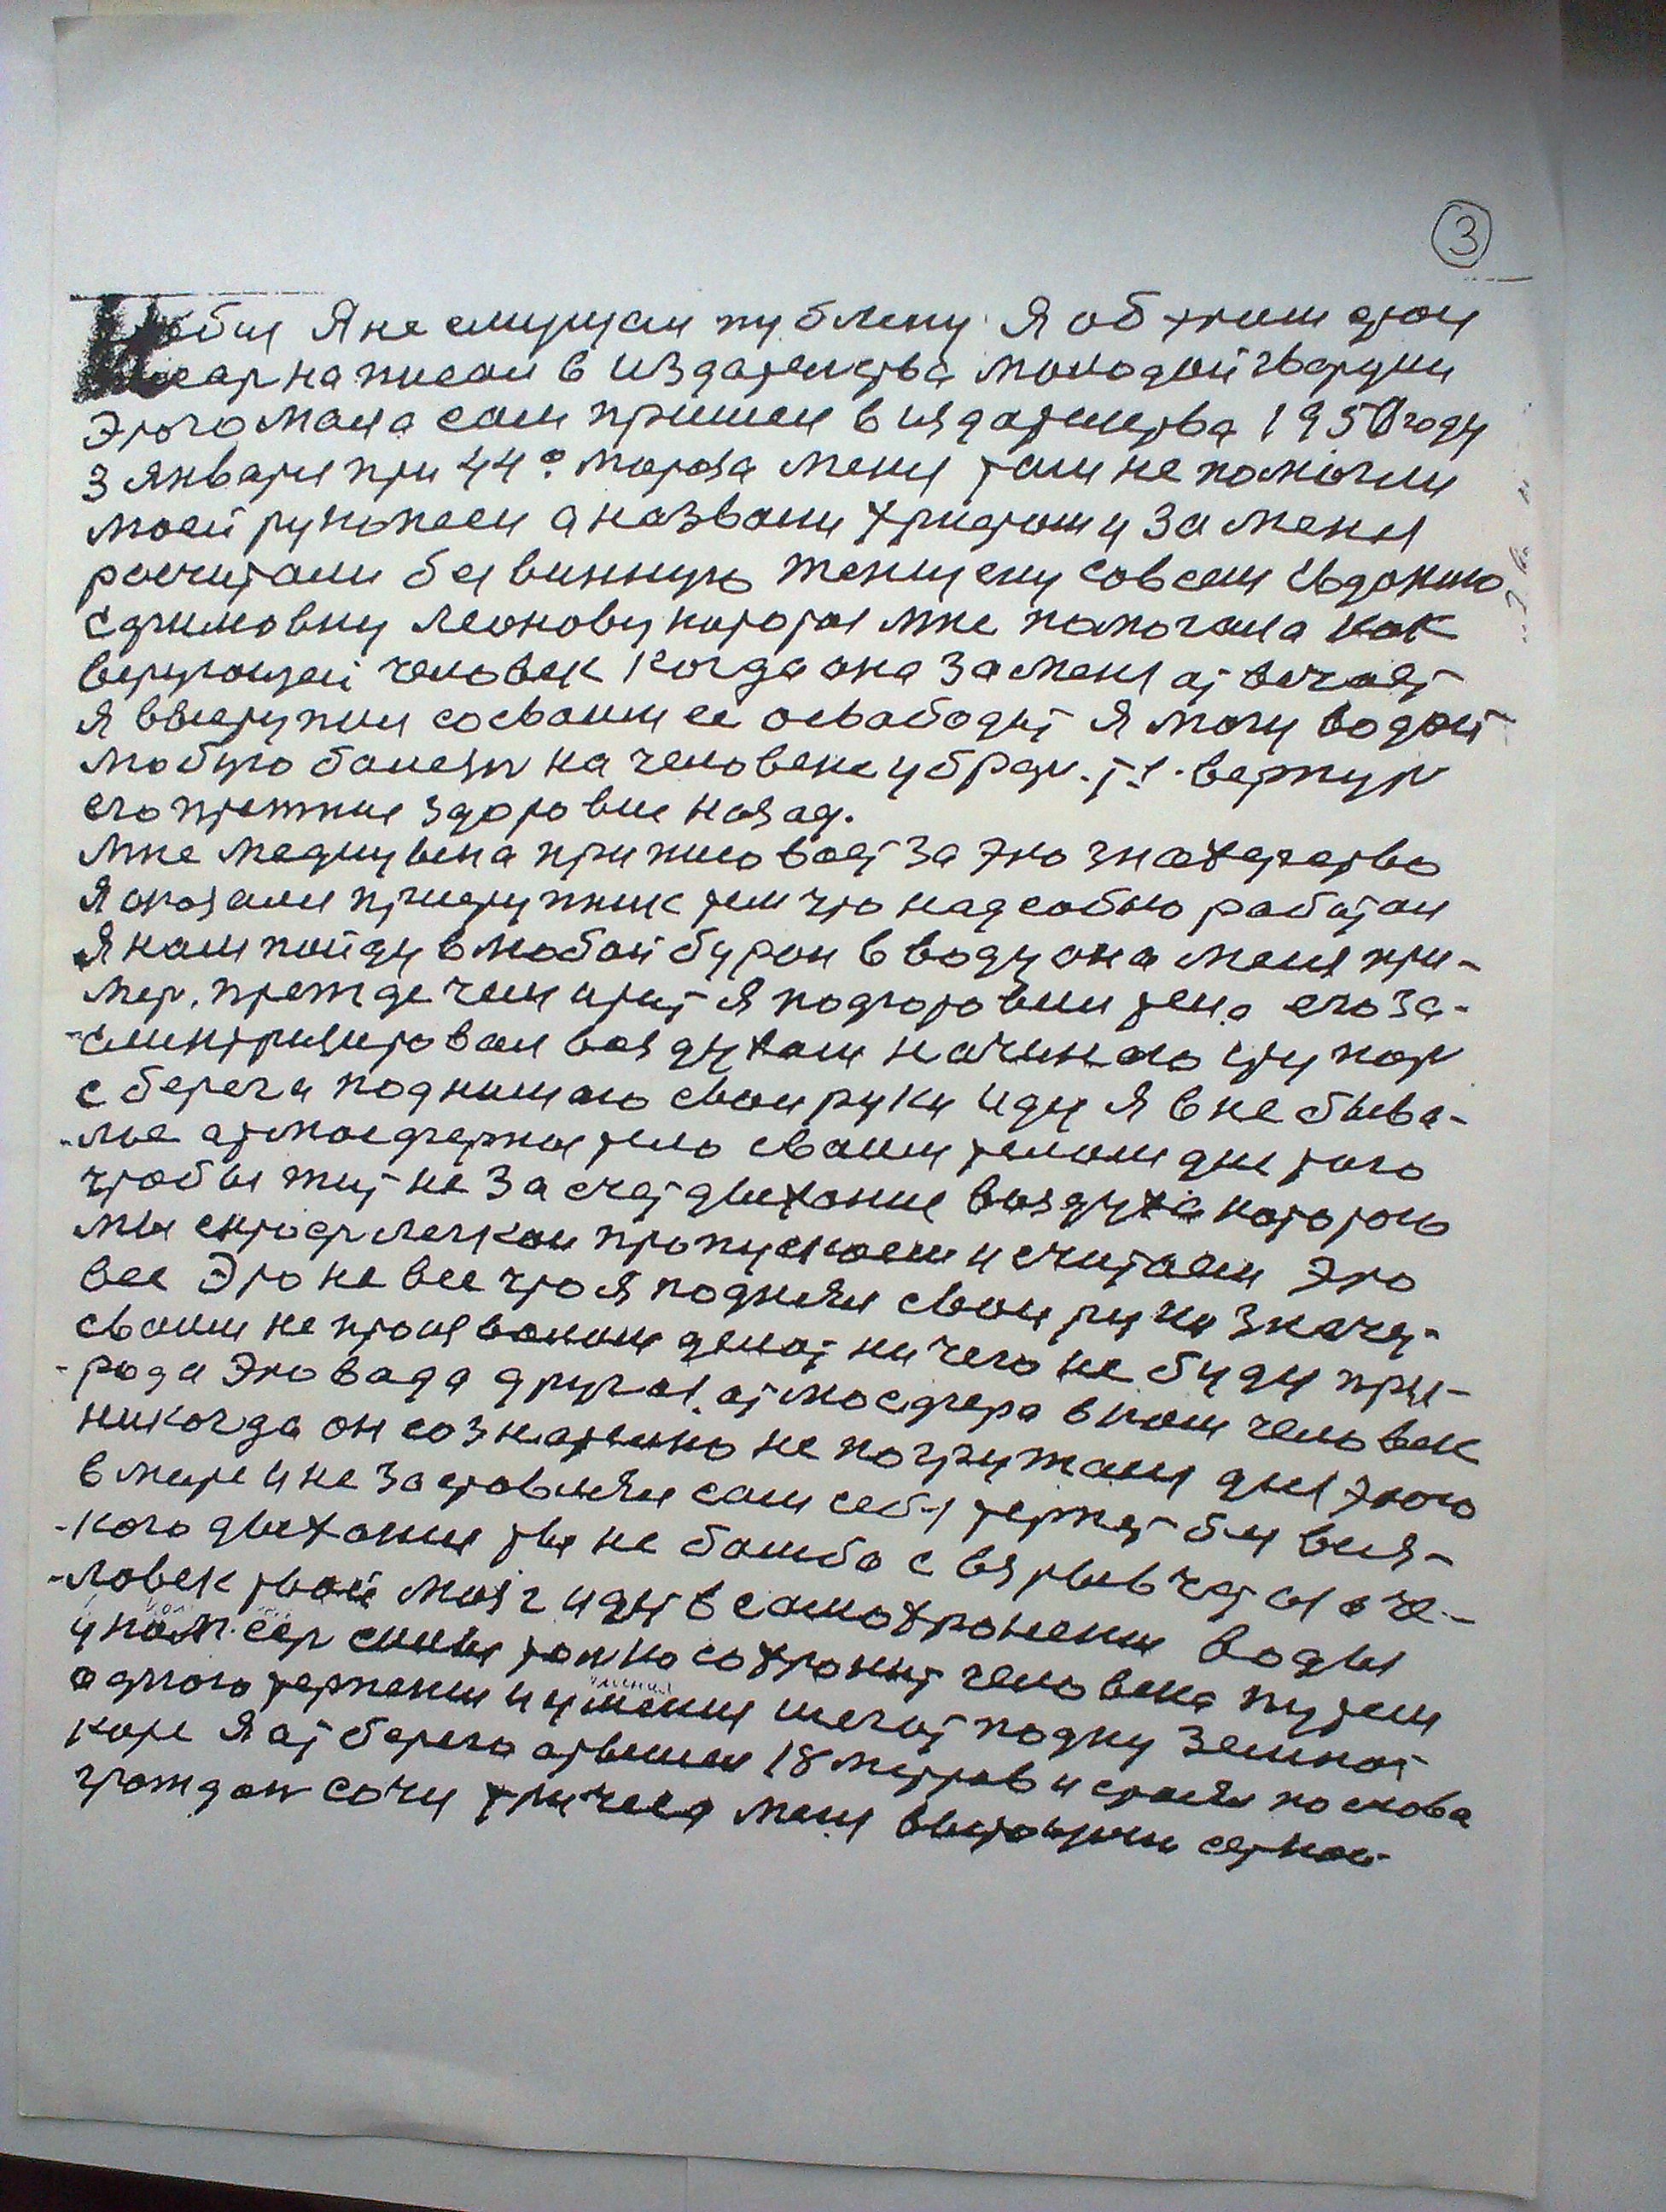 ③
чтобы Я не смущал публику. Я об этом этом
писал написал в издательства молодой гвардии
Этого мала сам пришел в издательства 1951 году
3 января при 44° мароза меня там не помогли
моей рукописи а назвали христом и за меня
росчитали безвинную женщену совсем
Ефимовну Леонову каторая мне помогала как
верующей человек Когда она за меня отвечает
Я вступил со своим ее освабодит Я могу водой
любую болезнь на человеке убрать. т.е. вернуть
его прежния здоровия назад.
Мне медицына приписовает за это знахарство
Я оказался приступник тем что над собою работал
Я нам пойду в любой буран в воду она меня при-
мер. прежде чем итит я подготовил тела его за-
воздухам начинаю ступать
с берега поднимаю свои руки иду Я в не быва-
-лые атмосферныя тело своим телом для того
чтобы жит не за счет дыхание воздуха каторою
мы сквозь легкои пропускаем и считаем Это
все Это не все что я поднял свои руки значет
своим не произволом делат ничего не буду при-
-рода Это вада другая. атмосфера в ком человек
никогда он сознательно не погружался для этого
в мире и не заставлял сам себя терпет без вся-
-кого дыхания ты не бомба с взрывчатыя а че-
-ловек твой мозг идет в самохронении воды
толко сохронит человека путем
аднаго терпении и умения шегат подну земнот
каре Я от берега отвешел 18 метров и стоял по слова
граждан сочи три часа меня вытащили сеткои